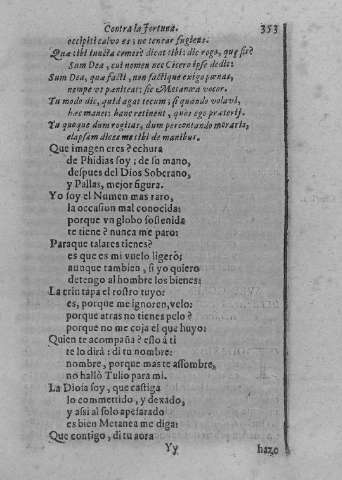 Contra la Fortuna. 353
occipiti calvo es; ne tentar fugiens.
Quæ tibi iuncta comes? dicat tibi: dic rogo, quæ sis?
Sum Dea, cui nomen nec Cicero ipse dedit:
Sum Dea, quæ facti, non factique exigo pœnas,
nempe ut pæniteat: sic Metanœa vocor.
Tu modo dic, quid agat tecum; si quando volavi,
hæc manet: hanc retinent, quos ego præterij.
Tu quoque dum rogitas, dum percontando moraris,
elapsam dices me tibi de manibus.
Que imagen eres? echura
de Phidias soy; de su mano,
despues del Dios Soberano,
y Pallas, mejor figura.
Yo soy el Numen mas raro,
la occasion mal conocida:
porque vn globo sostenida
te tiene? nunca me paro:
Paraque talares tienes?
es que es mi vuelo ligero;
aunque tambien, si yo quiero
detengo al hombre los bienes:
La crin tapa el rostro tuyo:
es, porque me ignoren, velo:
porque atras no tienes pelo?
porque no me coja el que huyo:
Quien te acompaña? esto á ti
te lo dirà: di tu nombre:
nombre, porque mas te assombre,
no hallò Tulio para mi.
La Diosa soy, que castiga
lo commettido, y dexado,
y assi al solo apesarado
es bien Metanea me diga:
Que contigo, di tu aora
Yy hazo